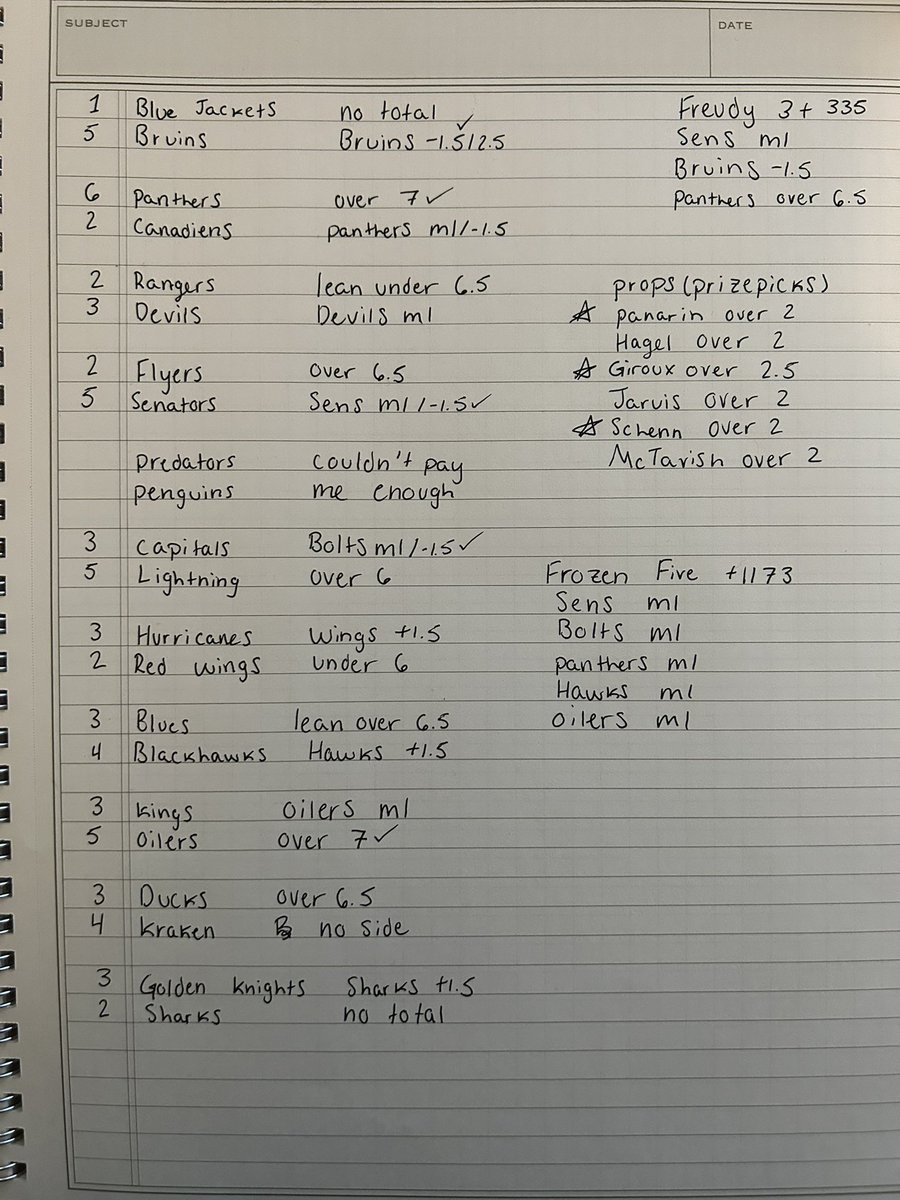 SUBJECT
DATE
1 Blue Jackets no total
5 Bruins Bruins -1.5/2.5 ✓
6 Panthers over 7 ✓
2 Canadiens panthers ml/-1.5
2 Rangers lean under 6.5
3 Devils Devils ml
2 Flyers over 6.5
5 Senators Sens ml/-1.5 ✓
predators couldn't pay
penguins me enough
3 Capitals Bolts ml/-1.5 ✓
5 Lightning over 6
3 Hurricanes Wings +1.5
2 Red wings under 6
3 Blues lean over 6.5
4 Blackhawks Hawks +1.5
3 kings oilers ml
5 oilers over 7 ✓
3 Ducks over 6.5
4 kraken no side
3 Golden knights Sharks +1.5
2 Sharks no total
Freudy 3 + 335
Sens ml
Bruins -1.5
panthers over 6.5
props (prizepicks)
☆ panarin over 2
Hagel over 2
☆ Giroux over 2.5
Jarvis over 2
☆ Schenn over 2
McTavish over 2
Frozen Five +1173
Sens ml
Bolts ml
panthers ml
Hawks ml
oilers ml